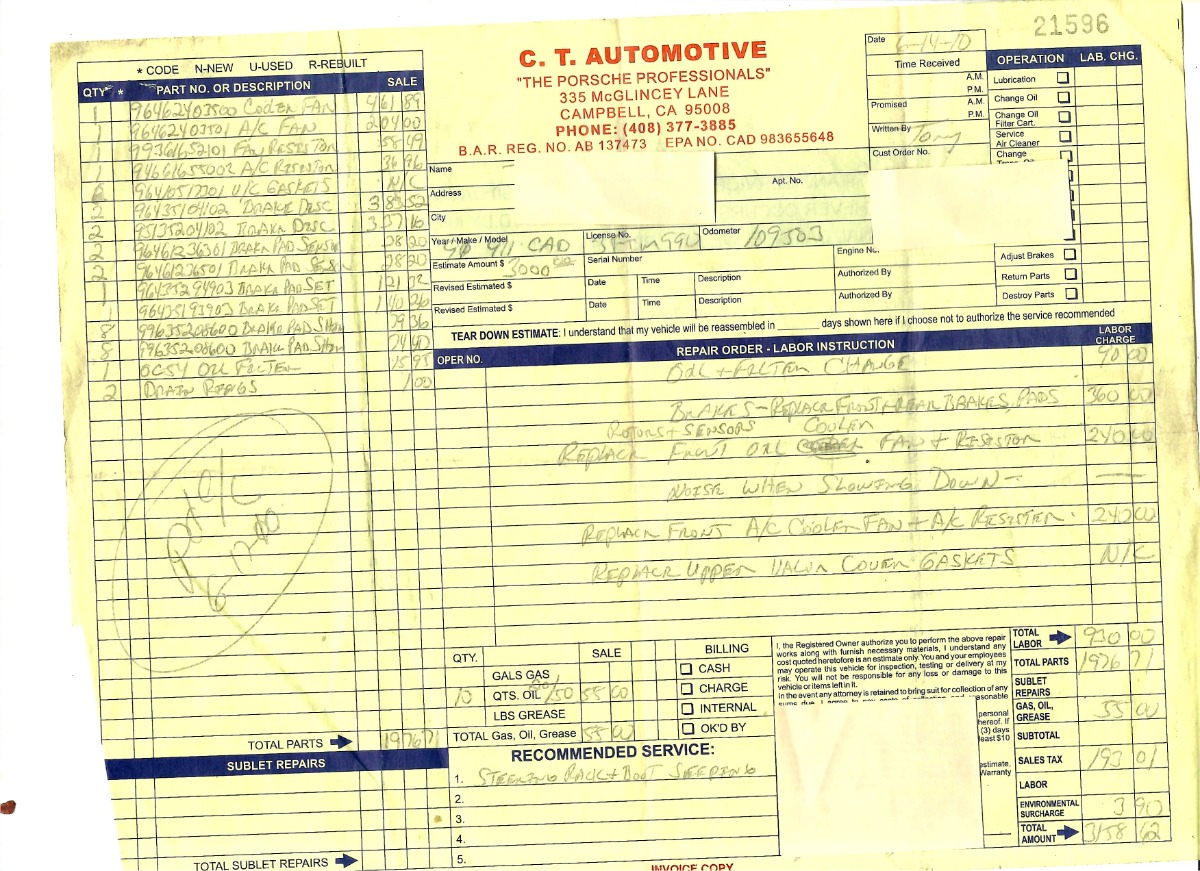 21596
* CODE N-NEW U-USED R-REBUILT
QTY * PART NO. OR DESCRIPTION SALE
1 96462403500 COOLER FAN 461 89
1 96462403501 A/C FAN 204 00
1 99361652101 FAN RESISTOR 58 49
1 94661655002 A/C RESISTOR 36 96
96410517701 V/C GASKETS N/C
2 96435104102 BRAKE DISC 383 52
2 95135204102 BRAKE DISC 337 16
2 96461236301 BRAKE PAD SENSR 28 20
2 96461236501 BRAKE PAD SENS 28 20
1 96435294903 BRAKE PAD SET 121 32
1 96435193903 BRAKE PAD SET 140 26
8 99635208600 BRAKE PAD SHIM 79 36
8 99635208600 BRAKE PAD SHIM
1 OC54 OIL FILTER 15 95
2 DRAIN RINGS 1 00
PD V/C
TOTAL PARTS 1976 71
SUBLET REPAIRS
TOTAL SUBLET REPAIRS
C. T. AUTOMOTIVE
"THE PORSCHE PROFESSIONALS"
335 McGLINCEY LANE
CAMPBELL, CA 95008
PHONE: (408) 377-3885
B.A.R. REG. NO. AB 137473 EPA NO. CAD 983655648
Date 6-14-10
Time Received
A.M.
P.M.
Promised A.M.
P.M.
Written By Tony
Cust Order No.
OPERATION LAB. CHG.
Lubrication
Change Oil
Change Oil Filter Cart.
Service Air Cleaner
Change
Adjust Brakes
Return Parts
Destroy Parts
Name
Address Apt. No.
City
Year / Make / Model 90 911 CAB License No. Odometer 109503
Estimate Amount $ 3000 Serial Number Engine No.
Revised Estimated $ Date Time Description Authorized By
Revised Estimated $ Date Time Description Authorized By
TEAR DOWN ESTIMATE: I understand that my vehicle will be reassembled in ______ days shown here if I choose not to authorize the service recommended
OPER NO. REPAIR ORDER - LABOR INSTRUCTION LABOR CHARGE
OIL + FILTER CHANGE 90 00
BRAKES - REPLACE FRONT + REAR BRAKES, PADS 360 00
ROTORS + SENSORS COOLER
REPLACE FRONT OIL FAN + RESISTOR 240 00
NOISE WHEN SLOWING DOWN -
REPLACE FRONT A/C COOLER FAN + A/C RESISTER 240 00
REPLACE UPPER VALVE COVER GASKETS N/C
QTY. SALE
GALS GAS
10 QTS. OIL 20/50 55 00
LBS GREASE
TOTAL Gas, Oil, Grease 55 00
BILLING
CASH
CHARGE
INTERNAL
OK'D BY
I, the Registered Owner authorize you to perform the above repair
works along with furnish necessary materials, I understand any
cost quoted heretofore is an estimate only. You and your employees
may operate this vehicle for inspection, testing or delivery at my
risk. You will not be responsible for any loss or damage to this
vehicle or items left in it.
in the event any attorney is retained to bring suit for collection of any
personal
hereof. If
(3) days
least $10
estimate.
Warranty
TOTAL LABOR 930 00
TOTAL PARTS 1976 71
SUBLET REPAIRS
GAS, OIL, GREASE 55 00
SUBTOTAL
SALES TAX 193 01
LABOR
ENVIRONMENTAL SURCHARGE 3 90
TOTAL AMOUNT 3158 62
RECOMMENDED SERVICE:
1. STEERING RACK + BOOT SEEPING
2.
3.
4.
5.
INVOICE COPY